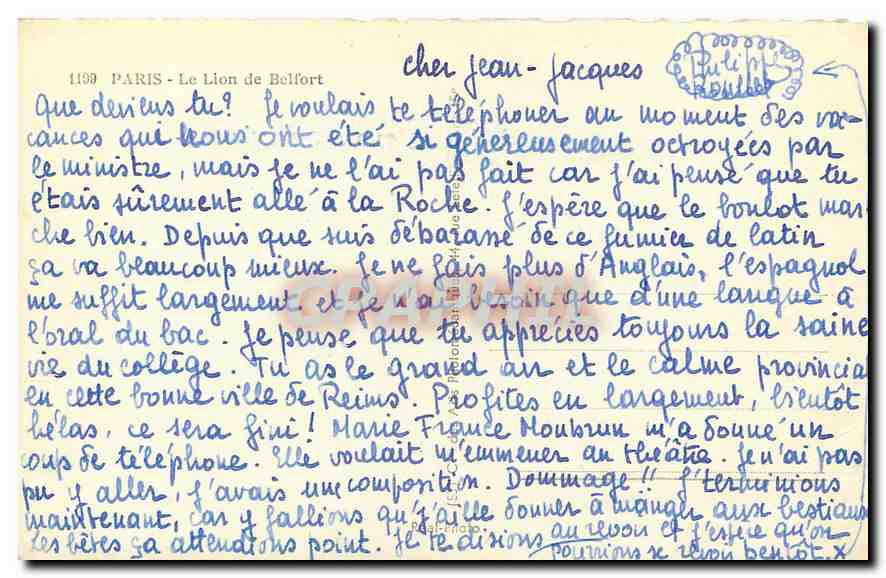 1199 PARIS - Le Lion de Belfort
cher Jean-Jacques
Que deviens tu? Je voulais te téléphoner au moment des va-
cances qui nous ont été si généreusement octroyées par
le ministre, mais je ne l'ai pas fait car j'ai pensé que tu
étais sûrement allé à la Roche. J'espère que le boulot mar-
che bien. Depuis que suis débarassé de ce fumier de latin
ça va beaucoup mieux. Je ne fais plus d'Anglais, l'espagnol
me suffit largement et je n'ai besoin que d'une langue à
l'oral du bac. Je pense que tu apprécies toujours la saine
vie du collège. Tu as le grand air et le calme provincial
en cette bonne ville de Reims. Profites en largement, bientôt
hélas, ce sera fini! Marie France Monbrun m'a donné un
coup de téléphone. Elle voulait m'emmener au théâtre. Je n'ai pas
pu y aller, j'avais une composition. Dommage!! J'terminions
maintenant, car y fallions qu'j'aille donner à manger aux bestiaux
Les bêtes ça attendions point. Je te disions au revoir et j'espère qu'on
pourrions se revoir bentôt. X
Réal-Photo
GRAPHI